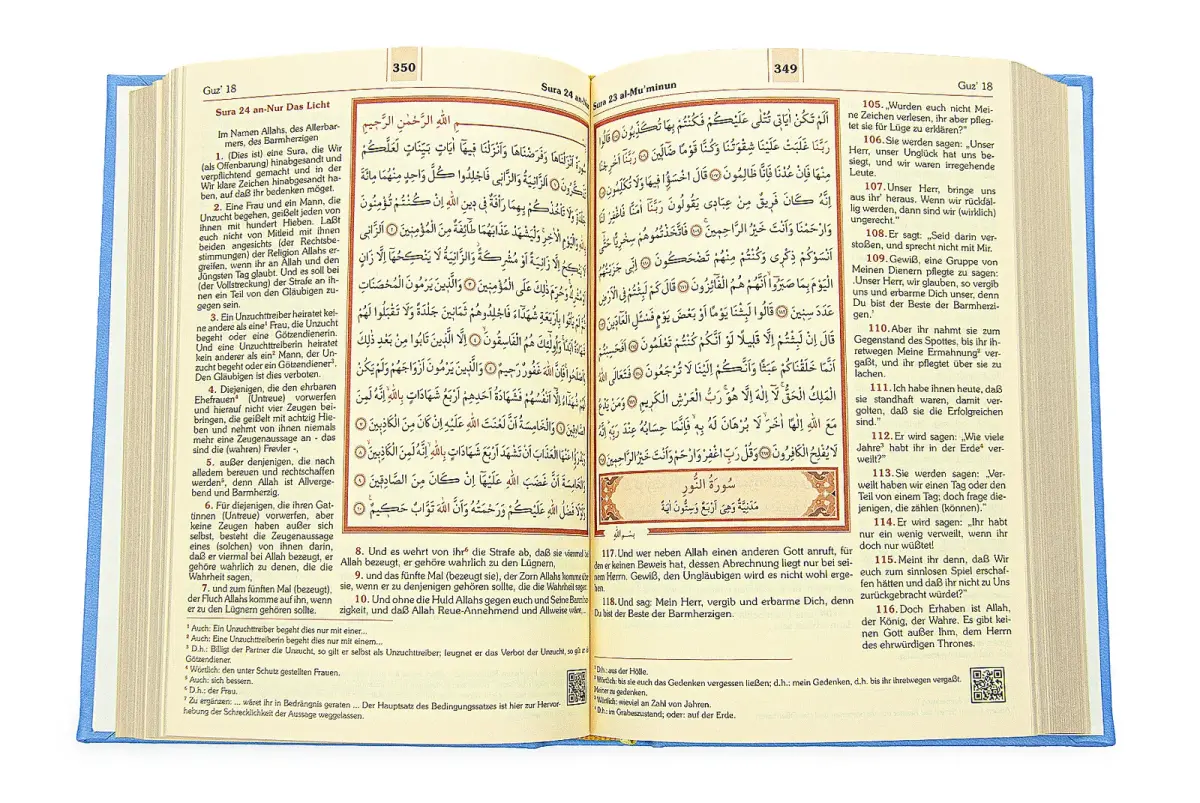 349
Guz' 18
Sura 23 al-Mu'minun
اَلَمْ تَكُنْ اٰيَات۪ي تُتْلٰى عَلَيْكُمْ فَكُنْتُمْ بِهَا تُكَذِّبُونَ ﴿١٠٥﴾ قَالُوا
رَبَّنَا غَلَبَتْ عَلَيْنَا شِقْوَتُنَا وَكُنَّا قَوْمًا ضَٓالّ۪ينَ ﴿١٠٦﴾ رَبَّنَٓا اَخْرِجْنَا
مِنْهَا فَاِنْ عُدْنَا فَاِنَّا ظَالِمُونَ ﴿١٠٧﴾ قَالَ اخْسَؤُ۫ا ف۪يهَا وَلَا تُكَلِّمُونِ ﴿١٠٨﴾
اِنَّهُ كَانَ فَر۪يقٌ مِنْ عِبَاد۪ي يَقُولُونَ رَبَّنَٓا اٰمَنَّا فَاغْفِرْ لَنَا
وَارْحَمْنَا وَاَنْتَ خَيْرُ الرَّاحِم۪ينَ ﴿١٠٩﴾ فَاتَّخَذْتُمُوهُمْ سِخْرِيًّا حَتّٰٓى
اَنْسَوْكُمْ ذِكْر۪ي وَكُنْتُمْ مِنْهُمْ تَضْحَكُونَ ﴿١١٠﴾ اِنّ۪ي جَزَيْتُهُمُ
الْيَوْمَ بِمَا صَبَرُٓوا اَنَّهُمْ هُمُ الْفَٓائِزُونَ ﴿١١١﴾ قَالَ كَمْ لَبِثْتُمْ فِي الْاَرْضِ
عَدَدَ سِن۪ينَ ﴿١١٢﴾ قَالُوا لَبِثْنَا يَوْمًا اَوْ بَعْضَ يَوْمٍ فَسْـَٔلِ الْعَٓادّ۪ينَ ﴿١١٣﴾
قَالَ اِنْ لَبِثْتُمْ اِلَّا قَل۪يلًا لَوْ اَنَّكُمْ كُنْتُمْ تَعْلَمُونَ ﴿١١٤﴾ اَفَحَسِبْتُمْ
اَنَّمَا خَلَقْنَاكُمْ عَبَثًا وَاَنَّكُمْ اِلَيْنَا لَا تُرْجَعُونَ ﴿١١٥﴾ فَتَعَالَى اللّٰهُ
الْمَلِكُ الْحَقُّۚ لَٓا اِلٰهَ اِلَّا هُوَۚ رَبُّ الْعَرْشِ الْكَر۪يمِ ﴿١١٦﴾ وَمَنْ يَدْعُ
مَعَ اللّٰهِ اِلٰهًا اٰخَرَۙ لَا بُرْهَانَ لَهُ بِه۪ۙ فَاِنَّمَا حِسَابُهُ عِنْدَ رَبِّه۪ۜ اِنَّهُ
لَا يُفْلِحُ الْكَافِرُونَ ﴿١١٧﴾ وَقُلْ رَبِّ اغْفِرْ وَارْحَمْ وَاَنْتَ خَيْرُ الرَّاحِم۪ينَ ﴿١١٨﴾
سُورَةُ النُّورِ
مَدَنِيَّةٌ وَهِيَ اَرْبَعٌ وَسِتُّونَ اٰيَةً
بِسْمِ اللّٰهِ
105. „Wurden euch nicht Mei-
ne Zeichen verlesen, ihr aber pfleg-
tet sie für Lüge zu erklären?"
106. Sie werden sagen: „Unser
Herr, unser Unglück hat uns be-
siegt, und wir waren irregehende
Leute.
107. Unser Herr, bringe uns
aus ihr¹ heraus. Wenn wir rückfäl-
lig werden, dann sind wir (wirklich)
ungerecht."
108. Er sagt: „Seid darin ver-
stoßen, und sprecht nicht mit Mir.
109. Gewiß, eine Gruppe von
Meinen Dienern pflegte zu sagen:
‚Unser Herr, wir glauben, so vergib
uns und erbarme Dich unser, denn
Du bist der Beste der Barmherzi-
gen.'
110. Aber ihr nahmt sie zum
Gegenstand des Spottes, bis ihr ih-
retwegen Meine Ermahnung² ver-
gaßt, und ihr pflegtet über sie zu
lachen.
111. Ich habe ihnen heute, daß
sie standhaft waren, damit ver-
golten, daß sie die Erfolgreichen
sind."
112. Er wird sagen: „Wie viele
Jahre³ habt ihr in der Erde⁴ ver-
weilt?"
113. Sie werden sagen: „Ver-
weilt haben wir einen Tag oder den
Teil von einem Tag; doch frage die-
jenigen, die zählen (können)."
114. Er wird sagen: „Ihr habt
nur ein wenig verweilt, wenn ihr
doch nur wüßtet!
115. Meint ihr denn, daß Wir
euch zum sinnlosen Spiel erschaf-
fen hätten und daß ihr nicht zu Uns
zurückgebracht würdet?"
116. Doch Erhaben ist Allah,
der König, der Wahre. Es gibt kei-
nen Gott außer Ihm, dem Herrn
des ehrwürdigen Thrones.
117. Und wer neben Allah einen anderen Gott anruft, für
den er keinen Beweis hat, dessen Abrechnung liegt nur bei sei-
nem Herrn. Gewiß, den Ungläubigen wird es nicht wohl erge-
hen.
118. Und sag: Mein Herr, vergib und erbarme Dich, denn
Du bist der Beste der Barmherzigen.
¹ D.h.: aus der Hölle.
² Wörtlich: bis sie euch das Gedenken vergessen ließen; d.h.: mein Gedenken, d.h. bis ihr ihretwegen vergaßt,
Meiner zu gedenken.
³ Wörtlich: wieviel an Zahl von Jahren.
⁴ D.h.: im Grabeszustand; oder: auf der Erde.
350
Guz' 18
Sura 24 an-Nur
Sura 24 an-Nur Das Licht
Im Namen Allahs, des Allerbar-
mers, des Barmherzigen
1. (Dies ist) eine Sura, die Wir
(als Offenbarung) hinabgesandt und
verpflichtend gemacht und in der
Wir klare Zeichen hinabgesandt ha-
ben, auf daß ihr bedenken möget.
2. Eine Frau und ein Mann, die
Unzucht begehen, geißelt jeden von
ihnen mit hundert Hieben. Laßt
euch nicht von Mitleid mit ihnen
beiden angesichts (der Rechtsbe-
stimmungen) der Religion Allahs er-
greifen, wenn ihr an Allah und den
Jüngsten Tag glaubt. Und es soll bei
(der Vollstreckung) der Strafe an ih-
nen ein Teil von den Gläubigen zu-
gegen sein.
3. Ein Unzuchttreiber heiratet kei-
ne andere als eine¹ Frau, die Unzucht
begeht oder eine Götzendienerin.
Und eine Unzuchttreiberin heiratet
kein anderer als ein² Mann, der Un-
zucht begeht oder ein Götzendiener³.
Den Gläubigen ist dies verboten.
4. Diejenigen, die den ehrbaren
Ehefrauen⁴ (Untreue) vorwerfen
und hierauf nicht vier Zeugen bei-
bringen, die geißelt mit achtzig Hie-
ben und nehmt von ihnen niemals
mehr eine Zeugenaussage an - das
sind die (wahren) Frevler -,
5. außer denjenigen, die nach
alledem bereuen und rechtschaffen
werden⁵, denn Allah ist Allverge-
bend und Barmherzig.
6. Für diejenigen, die ihren Gat-
tinnen (Untreue) vorwerfen, aber
keine Zeugen haben außer sich
selbst, besteht die Zeugenaussage
eines (solchen) von ihnen darin,
daß er viermal bei Allah bezeugt, er
gehöre wahrlich zu denen, die die
Wahrheit sagen,
7. und zum fünften Mal (bezeugt),
der Fluch Allahs komme auf ihn, wenn
er zu den Lügnern gehören sollte.
اللّٰهِ الرَّحْمٰنِ الرَّح۪يمِ
سُورَةٌ اَنْزَلْنَاهَا وَفَرَضْنَاهَا وَاَنْزَلْنَا ف۪يهَٓا اٰيَاتٍ بَيِّنَاتٍ لَعَلَّكُمْ
تَذَكَّرُونَ ﴿١﴾ اَلزَّانِيَةُ وَالزَّان۪ي فَاجْلِدُوا كُلَّ وَاحِدٍ مِنْهُمَا مِائَةَ
جَلْدَةٍ وَلَا تَأْخُذْكُمْ بِهِمَا رَأْفَةٌ ف۪ي د۪ينِ اللّٰهِ اِنْ كُنْتُمْ تُؤْمِنُونَ
بِاللّٰهِ وَالْيَوْمِ الْاٰخِرِ وَلْيَشْهَدْ عَذَابَهُمَا طَٓائِفَةٌ مِنَ الْمُؤْمِن۪ينَ ﴿٢﴾ اَلزَّان۪ي
لَا يَنْكِحُ اِلَّا زَانِيَةً اَوْ مُشْرِكَةً وَالزَّانِيَةُ لَا يَنْكِحُهَٓا اِلَّا زَانٍ
اَوْ مُشْرِكٌ وَحُرِّمَ ذٰلِكَ عَلَى الْمُؤْمِن۪ينَ ﴿٣﴾ وَالَّذ۪ينَ يَرْمُونَ الْمُحْصَنَاتِ
ثُمَّ لَمْ يَأْتُوا بِاَرْبَعَةِ شُهَدَٓاءَ فَاجْلِدُوهُمْ ثَمَان۪ينَ جَلْدَةً وَلَا تَقْبَلُوا لَهُمْ
شَهَادَةً اَبَدًا وَاُو۬لٰٓئِكَ هُمُ الْفَاسِقُونَ ﴿٤﴾ اِلَّا الَّذ۪ينَ تَابُوا مِنْ بَعْدِ ذٰلِكَ
وَاَصْلَحُوا فَاِنَّ اللّٰهَ غَفُورٌ رَح۪يمٌ ﴿٥﴾ وَالَّذ۪ينَ يَرْمُونَ اَزْوَاجَهُمْ وَلَمْ يَكُنْ
لَهُمْ شُهَدَٓاءُ اِلَّٓا اَنْفُسُهُمْ فَشَهَادَةُ اَحَدِهِمْ اَرْبَعُ شَهَادَاتٍ بِاللّٰهِ اِنَّهُ لَمِنَ
الصَّادِق۪ينَ ﴿٦﴾ وَالْخَامِسَةُ اَنَّ لَعْنَتَ اللّٰهِ عَلَيْهِ اِنْ كَانَ مِنَ الْكَاذِب۪ينَ ﴿٧﴾
وَيَدْرَؤُ۬ا عَنْهَا الْعَذَابَ اَنْ تَشْهَدَ اَرْبَعَ شَهَادَاتٍ بِاللّٰهِ اِنَّهُ لَمِنَ الْكَاذِب۪ينَ ﴿٨﴾
وَالْخَامِسَةَ اَنَّ غَضَبَ اللّٰهِ عَلَيْهَٓا اِنْ كَانَ مِنَ الصَّادِق۪ينَ ﴿٩﴾
وَلَوْلَا فَضْلُ اللّٰهِ عَلَيْكُمْ وَرَحْمَتُهُ وَاَنَّ اللّٰهَ تَوَّابٌ حَك۪يمٌ ﴿١٠﴾
8. Und es wehrt von ihr⁶ die Strafe ab, daß sie viermal bei
Allah bezeugt, er gehöre wahrlich zu den Lügnern,
9. und das fünfte Mal (bezeugt sie), der Zorn Allahs komme über
sie, wenn er zu denjenigen gehören sollte, die die Wahrheit sagen.
10. Und ohne die Huld Allahs gegen euch und Seine Barmher-
zigkeit, und daß Allah Reue-Annehmend und Allweise wäre,...
¹ Auch: Ein Unzuchttreiber begeht dies nur mit einer...
² Auch: Eine Unzuchttreiberin begeht dies nur mit einem...
³ D.h.: Billigt der Partner die Unzucht, so gilt er selbst als Unzuchttreiber; leugnet er das Verbot der Unzucht, so gilt er als
Götzendiener.
⁴ Wörtlich: den unter Schutz gestellten Frauen.
⁵ Auch: sich bessern.
⁶ D.h.: der Frau.
⁷ Zu ergänzen: ... wäret ihr in Bedrängnis geraten ... Der Hauptsatz des Bedingungssatzes ist hier zur Hervor-
hebung der Schrecklichkeit der Aussage weggelassen.